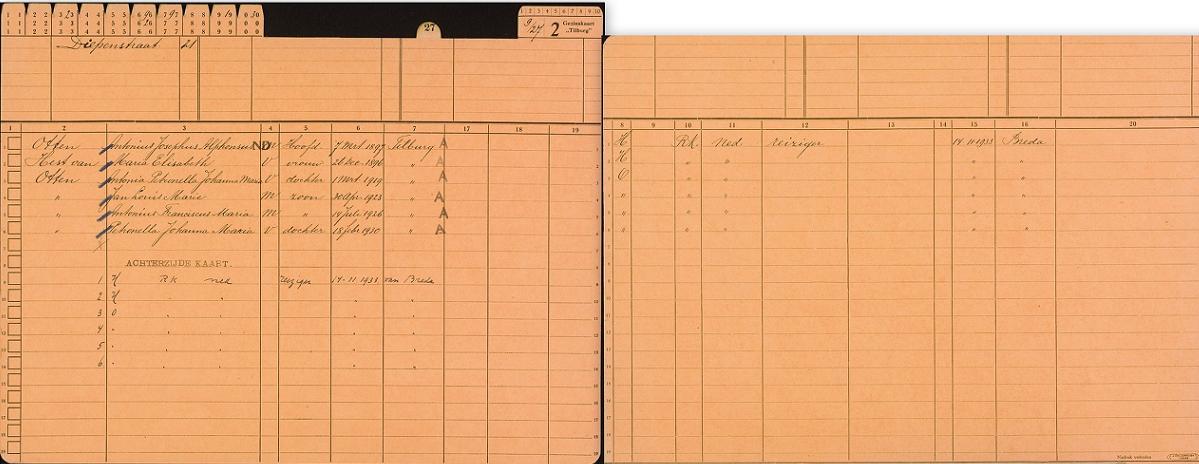 27
9/27 2 Gezinskaart „Tilburg"
Diepenstraat 21
1 2 3 4 5 6 7 17 18 19
Otten Antonius Josephus Alphonsus ND M Hoofd 7 Mrt 1897 Tilburg A
Hest van Maria Elisabeth V vrouw 26 dec 1896 " A
Otten Antonia Petronella Johanna Maria V dochter 1 Mrt 1919 " A
" Jan Louis Marie M zoon 30 Apr 1923 " A
" Antonius Franciscus Maria M " 14 Juli 1926 " A
" Petronella Johanna Maria V dochter 18 febr 1930 " A
ACHTERZIJDE KAART.
1 H RK ned reiziger 14-11 1933 van Breda
2 H " " " "
3 O " " " "
4 " " " " "
5 " " " " "
6 " " " " "
8 9 10 11 12 13 14 15 16 20
H R.k. ned reiziger 14 11 1933 Breda
H " " " "
O " " " "
" " " " "
" " " " "
" " " " "
Nadruk verboden